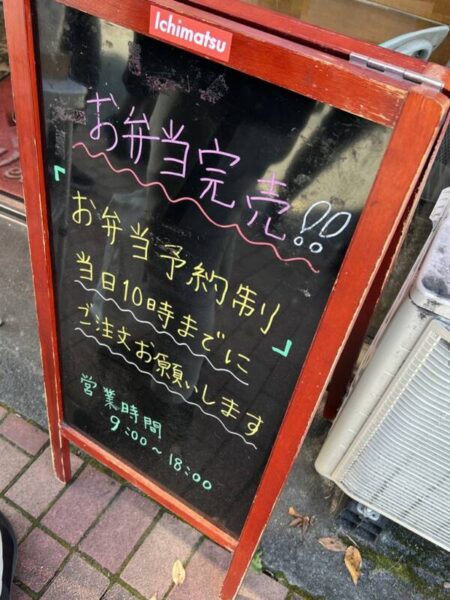 Ichimatsu
お弁当完売!!
「お弁当予約制
当日10時までに
ご注文お願いします」
営業時間
9:00～18:00